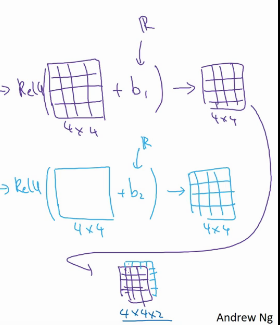 ℝ
→ ReLU( + b₁) →
4×4 4×4
ℝ
→ ReLU( + b₂) →
4×4 4×4
4×4×2
Andrew Ng